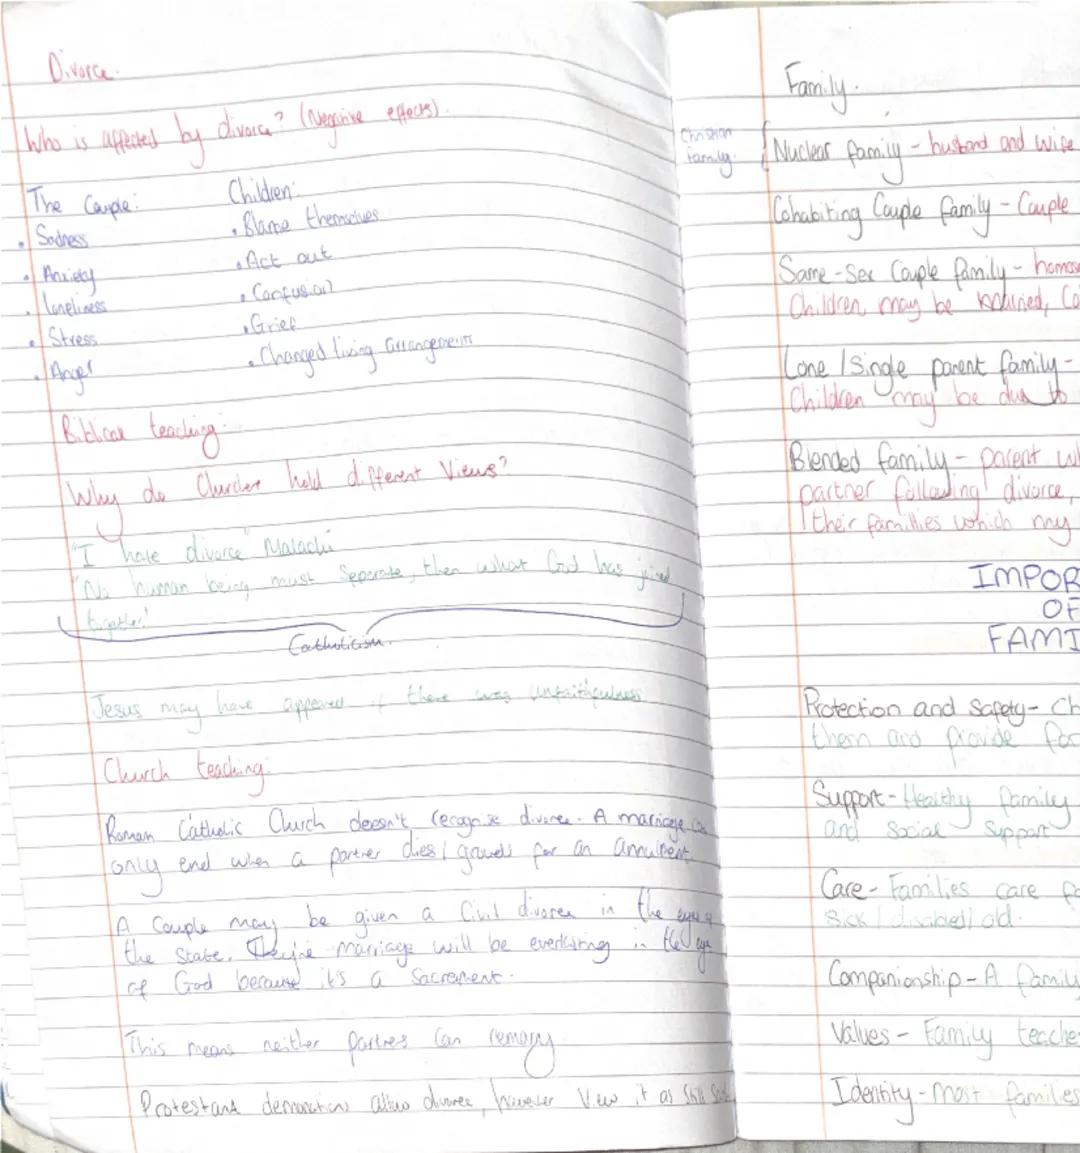 Divorce.
Who is affected by divorce? (Negative effects).
The Couple:
• Sadness
• Anxiety
• loneliness
• Stress
• Anger
Children:
• Blame themselves
• Act out
• Confusion
• Grief
• Changed living arrangements
Biblical teaching:
Why do Churches hold different Views?
"I hate divorce" Malachi
"No human being must Seperate, then what God has joined
together."
Catholicism.
Jesus may have appeared if there was unfaithfulness
Church teaching:
Roman Catholic Church doesn't recognise divorce. A marriage can
only end when a partner dies / for an annulment.
A Couple may be given a Civil divorce in the eyes of
the State. They're marriage will be everlasting in the eye
of God because it's a Sacrament.
This means neither partner can remarry.
Protestant allow divorce, however View it as still
Family.
Christian
family.
Nuclear family - husband and wife
Cohabiting Couple family - Couple
Same-Sex Couple family -
Children, may be
Lone / Single parent family -
Children may be due to
Blended family - parent
partner following divorce,
their famillies which may
IMPOR
OF
FAMI
Protection and Safety - Ch
them and provide for
Support - Healthy family
and social support
Care - Families care
sick / disabled / old.
Companionship - A family
Values - Family teache
Identity - most families